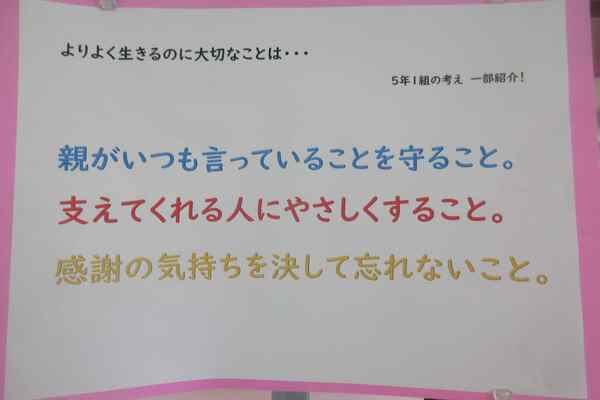 よりよく生きるのに大切なことは・・・
5年1組の考え 一部紹介!
親がいつも言っていることを守ること。
支えてくれる人にやさしくすること。
感謝の気持ちを決して忘れないこと。